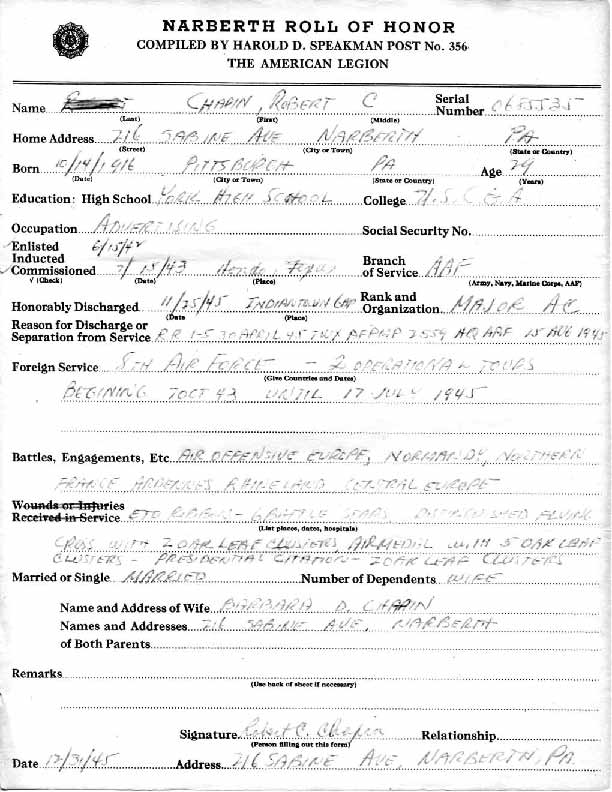 NARBERTH ROLL OF HONOR
COMPILED BY HAROLD D. SPEAKMAN POST No. 356
THE AMERICAN LEGION
Name CHAPIN, ROBERT C Serial Number 0655535
(Last) (First) (Middle)
Home Address 716 SABINE AVE NARBERTH PA
(Street) (City or Town) (State or Country)
Born 10/14/1916 PITTSBURGH PA Age 29
(Date) (City or Town) (State or Country) (Years)
Education: High School YORK HIGH SCHOOL College
Occupation ADVERTISING Social Security No.
Enlisted 6/15/42
Inducted Branch
Commissioned 7/15/43 Hondo, Texas of Service AAF
√ (Check) (Date) (Place) (Army, Navy, Marine Corps, AAF)
Honorably Discharged 11/25/45 INDIANTOWN GAP Rank and Organization MAJOR AC
(Date (Place)
Reason for Discharge or
Separation from Service RR 1-5 30 APRIL 45 TWX AFPMP 2559 HQ AAF 15 AUG 1945
Foreign Service 8TH AIR FORCE - 2 OPERATIONAL TOURS
(Give Countries and Dates)
BEGINING 7 OCT 43 UNTIL 17 JULY 1945
Battles, Engagements, Etc. AIR OFFENSIVE EUROPE, NORMANDY, NORTHERN
FRANCE ARDENNES RHINELAND CENTRAL EUROPE
Wounds or Injuries
Received in Service ETO RIBBON - 6 BATTLE STARS, DISTINGUISHED FLYING
(List places, dates, hospitals)
CROSS WITH 2 OAK LEAF CLUSTERS AIR MEDAL WITH 5 OAK LEAF
CLUSTERS - PRESIDENTIAL CITATION - 2 OAK LEAF CLUSTERS
Married or Single MARRIED Number of Dependents WIFE
Name and Address of Wife BARBARA D. CHAPIN
Names and Addresses 716 SABINE AVE, NARBERTH
of Both Parents
Remarks
(Use back of sheet if necessary)
Signature Robert C. Chapin Relationship
(Person filling out this form)
Date 12/31/45 Address 716 SABINE AVE, NARBERTH, PA.